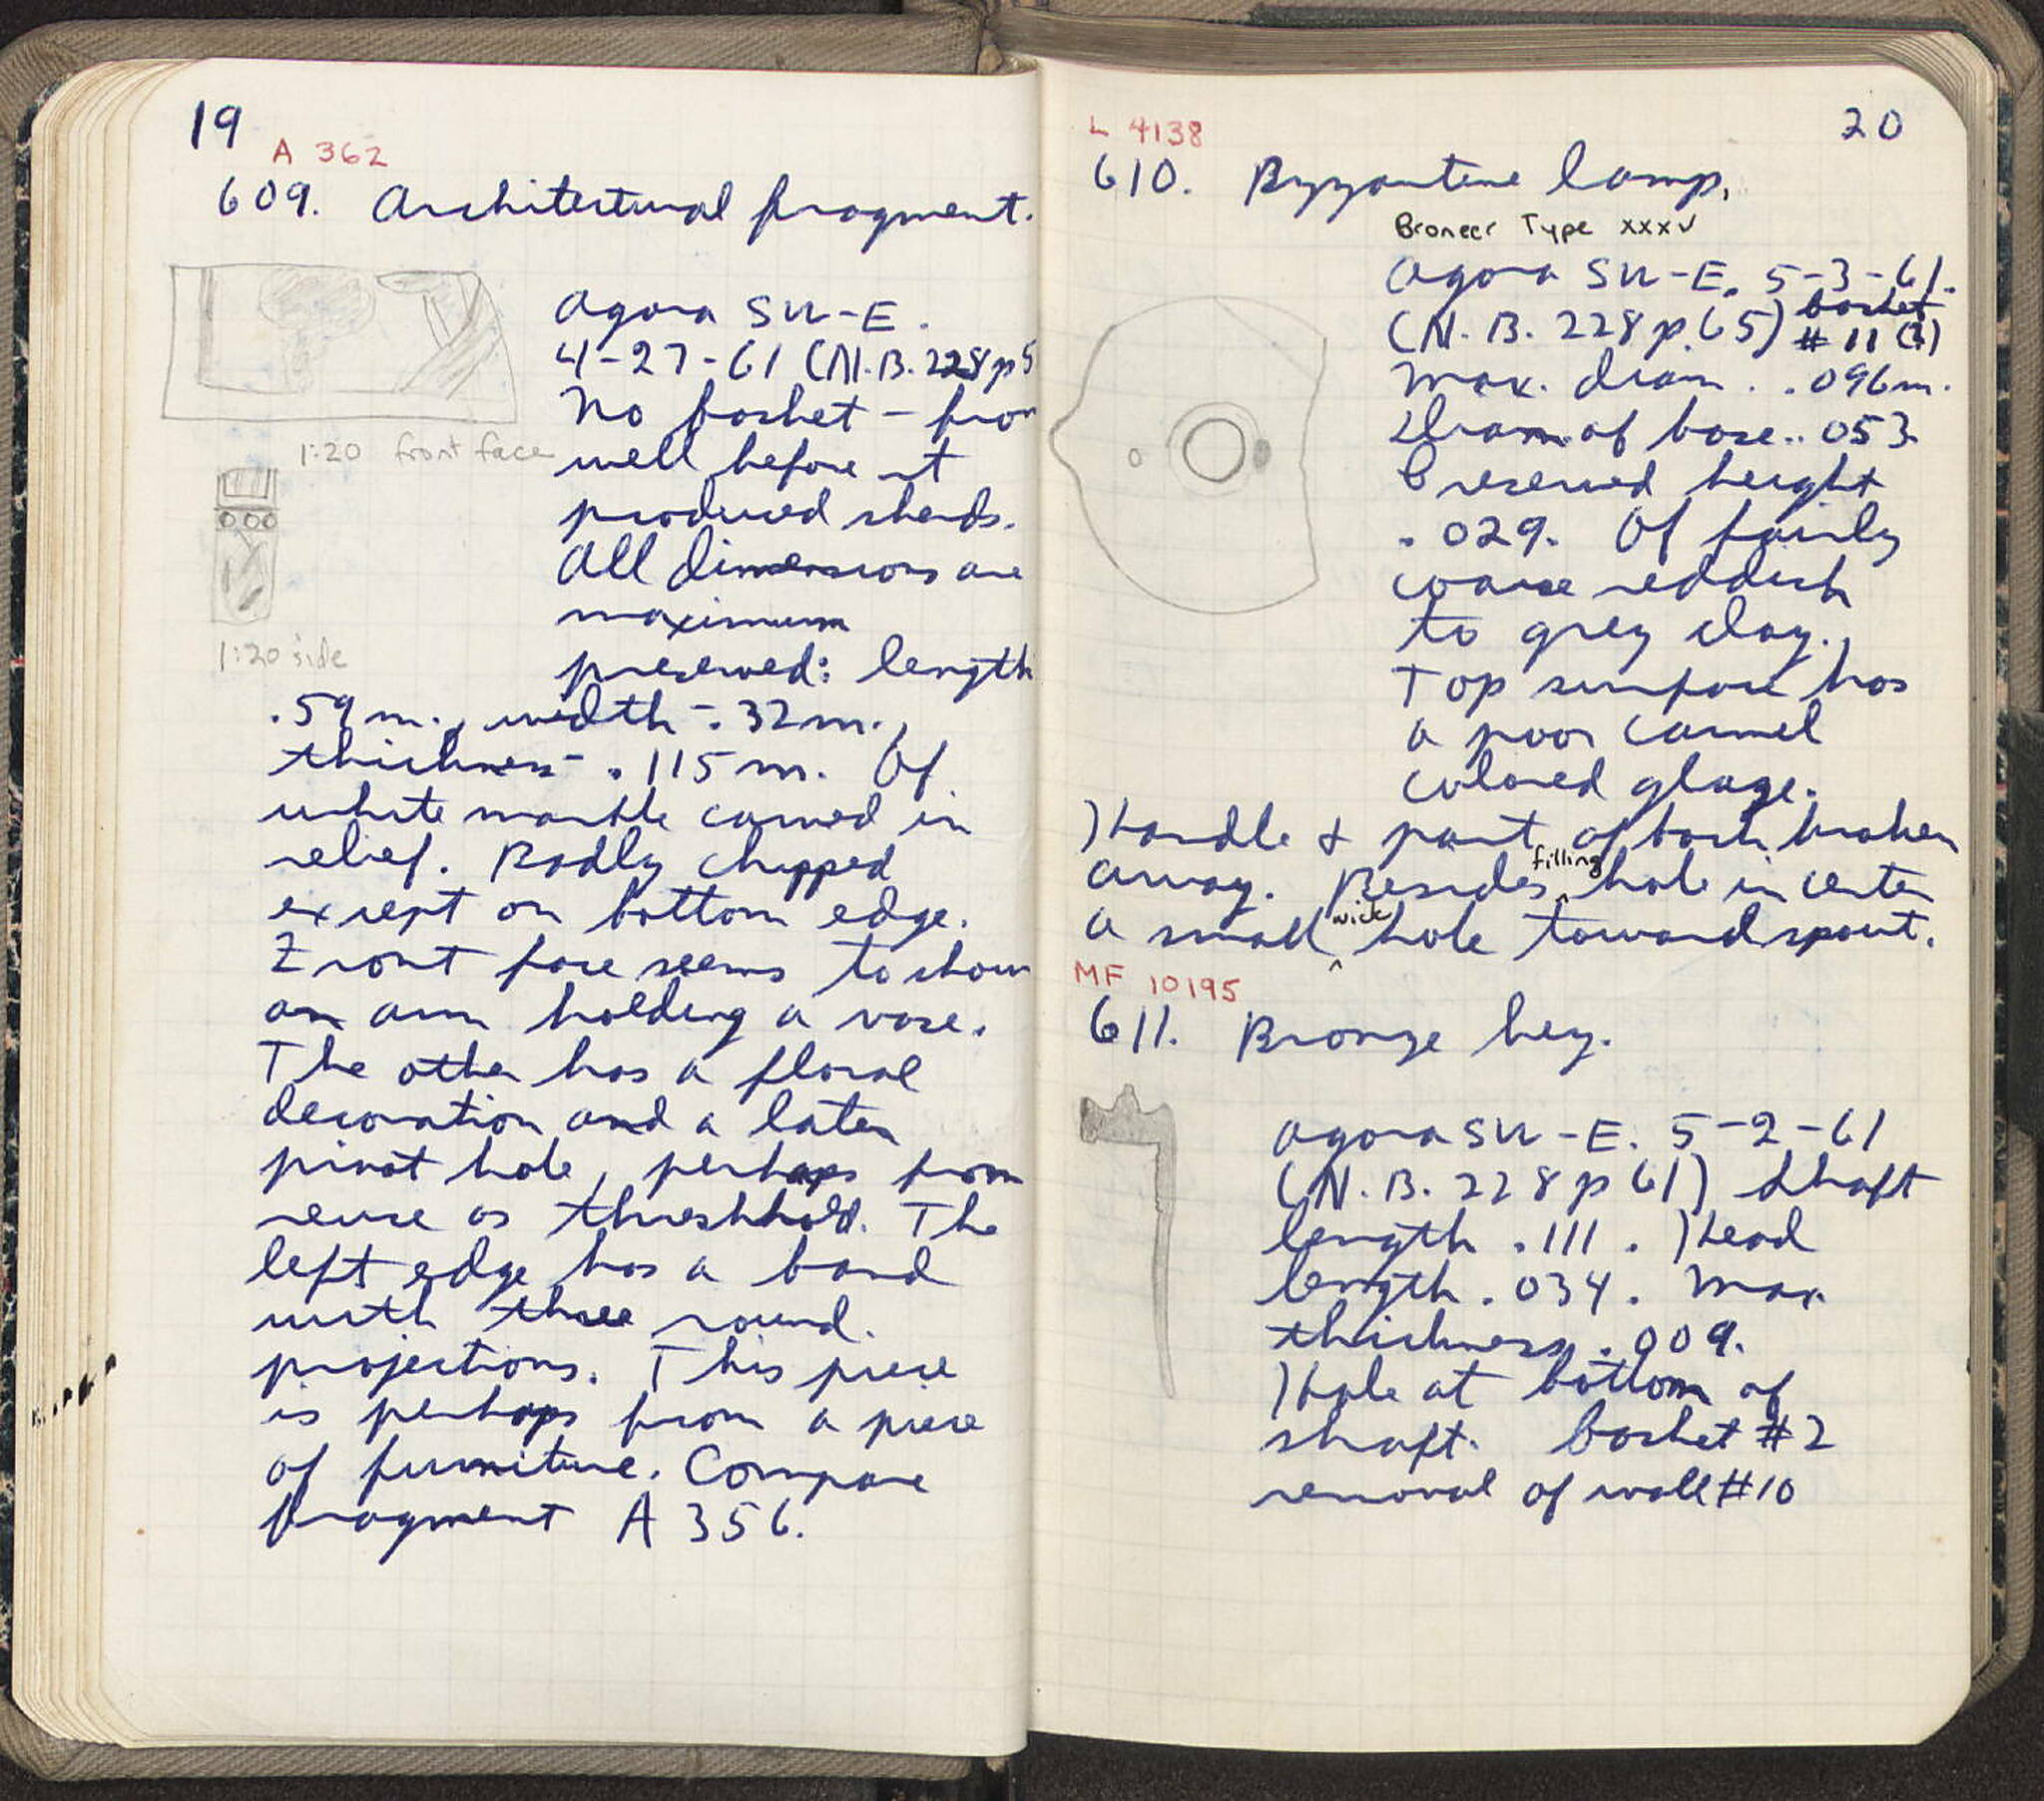 19
A 362
609. Architectural fragment.
1:20 front face
1:20 side
Agora SW-E.
4-27-61 (N.B. 228 p 5
No basket - from
well before it
produced sherds.
All dimensions are
maximum
preserved: length
.59 m., width - .32 m.,
thickness - .115 m. Of
white marble carved in
relief. Badly chipped
except on bottom edge.
Front face seems to show
an arm holding a vase.
The other has a floral
decoration and a later
pivot hole, perhaps from
reuse as threshhold. The
left edge has a band
with three round
projections. This piece
is perhaps from a piece
of furniture. Compare
fragment A 356.
20
L 4138
610. Byzantine lamp.
Broneer Type XXXV
Agora SW-E. 5-3-61.
(N.B. 228 p. 65) basket #11 (?)
Max. diam. .096 m.
Diam. of base .053.
Preserved height
.029. Of fairly
coarse reddish
to grey clay.
Top surface has
a poor carmel
colored glaze.
Handle & part of back broken
away. Besides filling hole in center
a small wick hole toward spout.
MF 10195
611. Bronze key.
Agora SW-E. 5-2-61
(N.B. 228 p 61) Shaft
length .111. Head
length .034. Max
thickness .009.
Hole at bottom of
shaft. basket #2
removal of wall #10